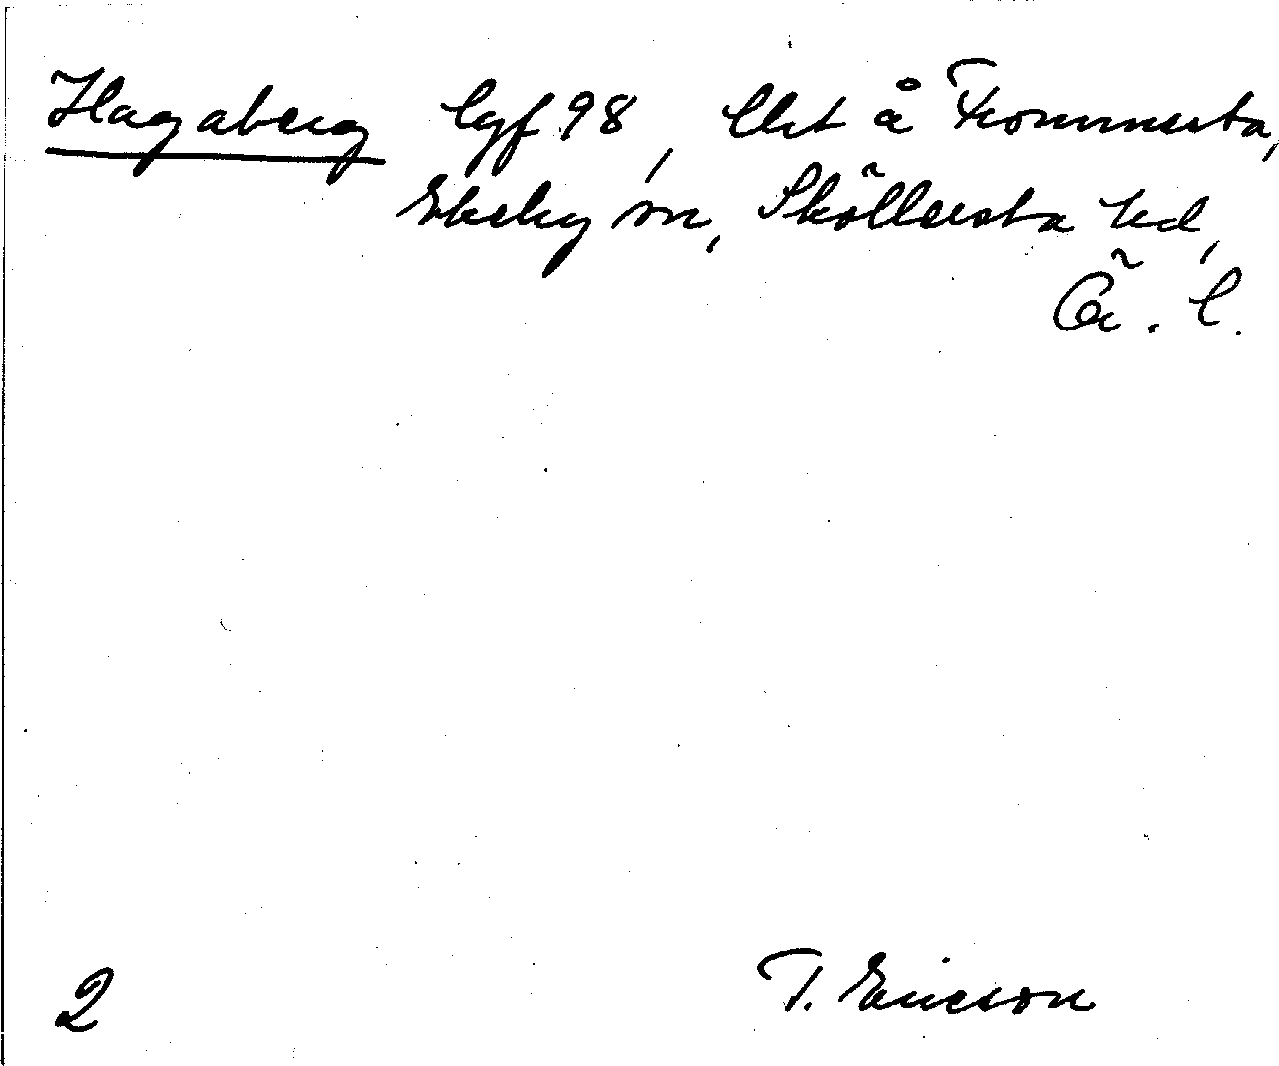 Hagaberg lgf 98, lht å Frommesta,
Ekeby sn, Sköllersta hd,
Ör. l.
2 T. Ericson